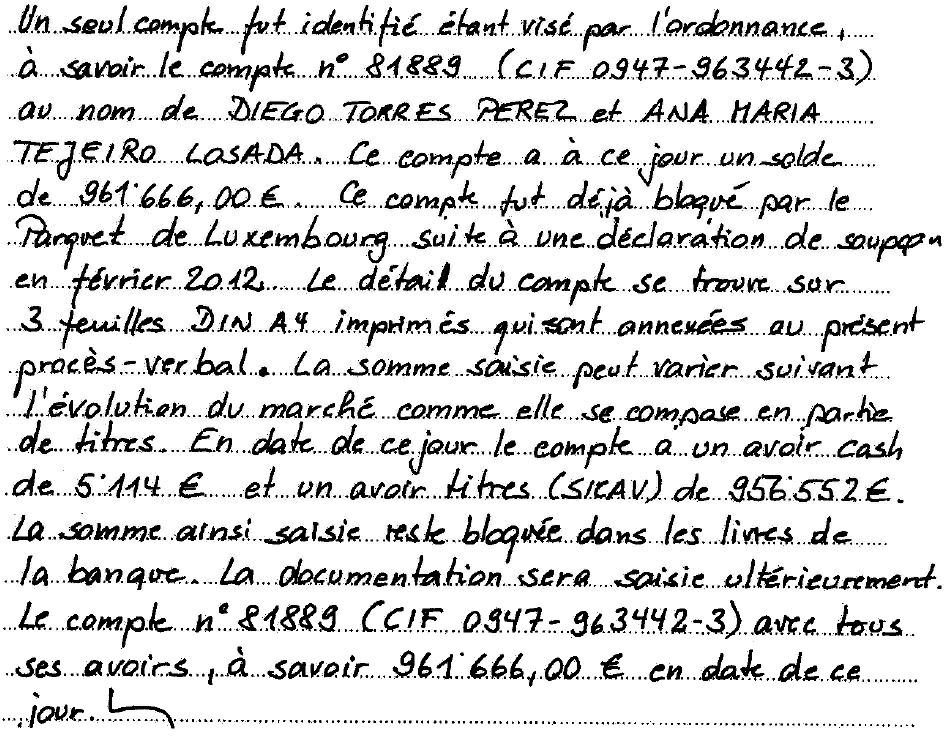 Un seul compte fut identifié étant visé par l'ordonnance,
à savoir le compte n° 81889 (CIF 0947-963442-3)
au nom de DIEGO TORRES PEREZ et ANA MARIA
TEJEIRO LOSADA. Ce compte a à ce jour un solde
de 961'666,00 €. Ce compte fut déjà bloqué par le
Parquet de Luxembourg suite à une déclaration de soupçon
en février 2012. Le détail du compte se trouve sur
3 feuilles DIN A4 imprimés qui sont annexées au présent
procès-verbal. La somme saisie peut varier suivant
l'évolution du marché comme elle se compose en partie
de titres. En date de ce jour le compte a un avoir cash
de 5'114 € et un avoir titres (SICAV) de 956'552 €.
La somme ainsi saisie reste bloquée dans les livres de
la banque. La documentation sera saisie ultérieurement.
Le compte n° 81889 (CIF 0947-963442-3) avec tous
ses avoirs, à savoir 961'666,00 € en date de ce
jour.